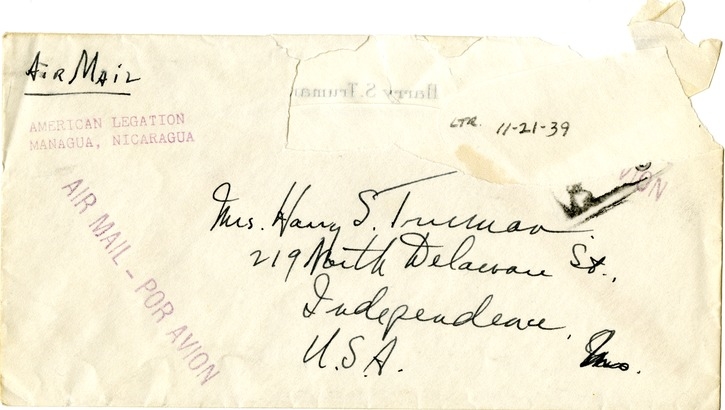 Air Mail
Harry S. Truman
LTR. 11-21-39
AMERICAN LEGATION
MANAGUA, NICARAGUA
VION
AIR MAIL - POR AVION
Mrs. Harry S. Truman
219 North Delaware St.,
Independence,
U.S.A. Mo.